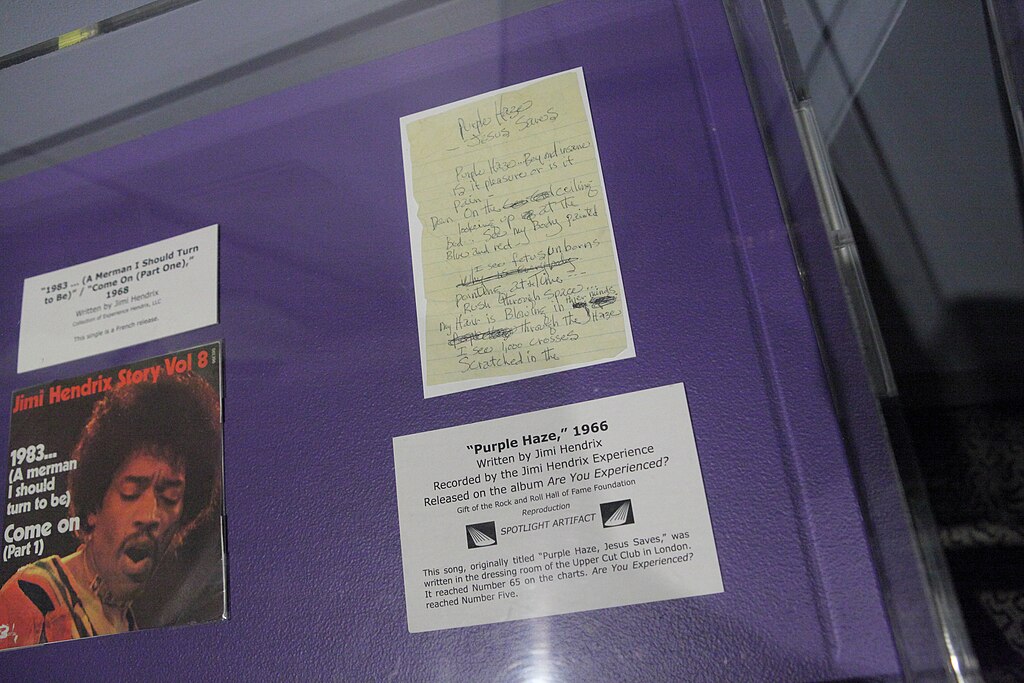 Purple Haze
- Jesus Saves
Purple Haze.. Beyond insane
Is it pleasure or is it
Pain -
Down On the ceiling
looking up at the
Bed.. See my Body painted
Blue and red
I see fetus unborns
pointing at time -
Rush through Space...
my Hair is Blowing in their minds
through the Haze
I see 1,000 crosses
Scratched in the
"1983 ... (A Merman I Should Turn
to Be)" / "Come On (Part One),"
1968
Written by Jimi Hendrix
Collection of Experience Hendrix, LLC
This single is a French release.
Jimi Hendrix Story Vol 8
1983...
(A merman
I should
turn to be)
Come on
(Part 1)
"Purple Haze," 1966
Written by Jimi Hendrix
Recorded by the Jimi Hendrix Experience
Released on the album Are You Experienced?
Gift of the Rock and Roll Hall of Fame Foundation
Reproduction
SPOTLIGHT ARTIFACT
This song, originally titled "Purple Haze, Jesus Saves," was
written in the dressing room of the Upper Cut Club in London.
It reached Number 65 on the charts. Are You Experienced?
reached Number Five.